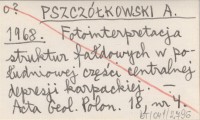 o?
PSZCZÓŁKOWSKI A.
1968. Fotointerpretacja
struktur fałdowych w po-
łudniowej części centralnej
depresji karpackiej. –
Acta Geol. Polon. 18, nr 4.